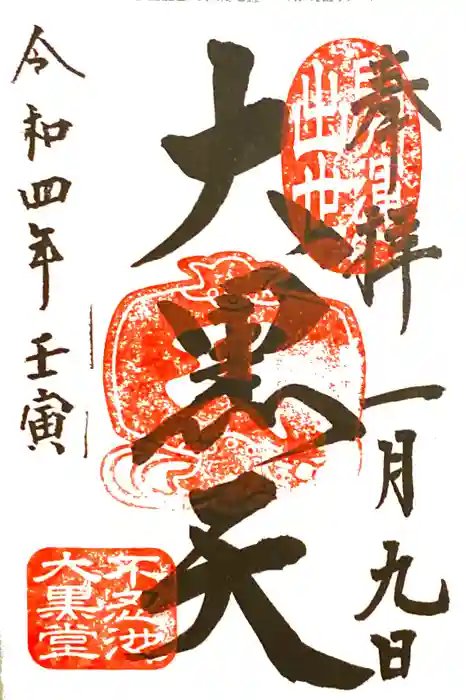 奉拝
一月九日
大黒天
令和四年壬寅
出世
不忍池
大黒堂